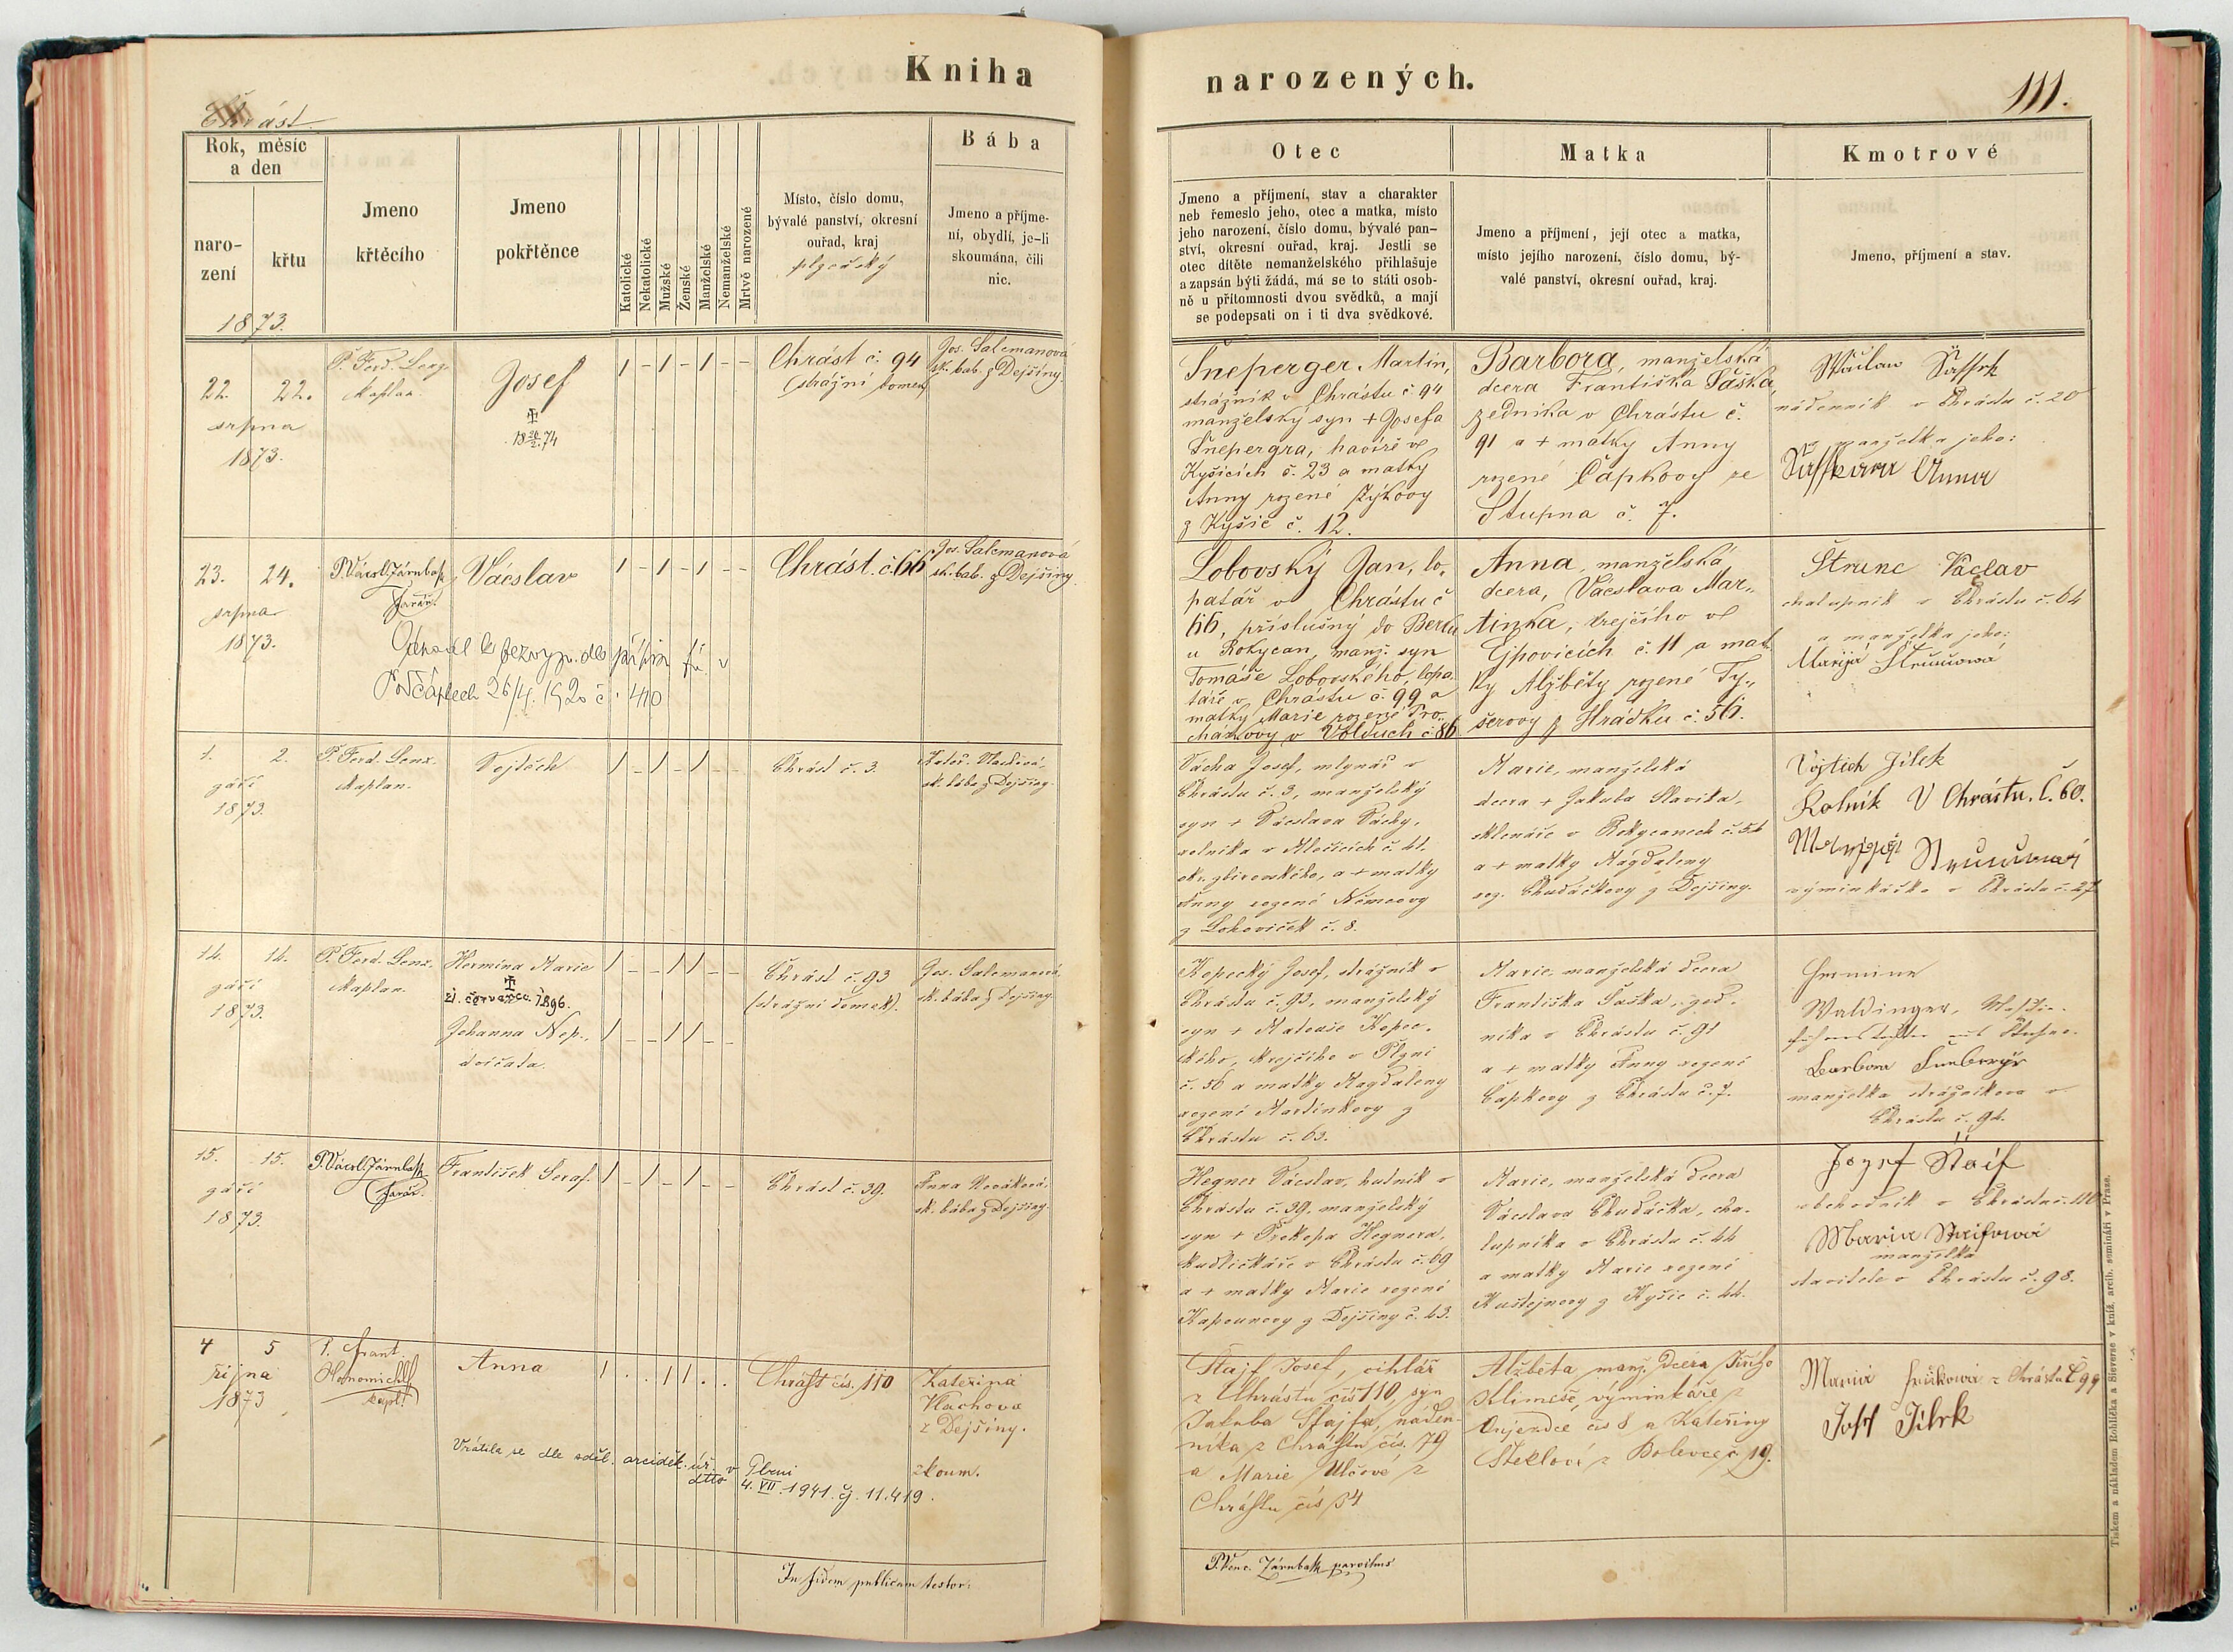 Kniha
narozených.
111.
Chrást
Rok, měsíc
a den
naro-
zení
křtu
1873.
Jmeno
křtěcího
Jmeno
pokřtěnce
Katolické
Nekatolické
Mužské
Ženské
Manželské
Nemanželské
Mrtvě narozené
Místo, číslo domu,
bývalé panství, okresní
ouřad, kraj
plzeňský
Bába
Jmeno a příjme-
ní, obydlí, je-li
skoumána, čili
nic.
Otec
Jmeno a příjmení, stav a charakter
neb řemeslo jeho, otec a matka, místo
jeho narození, číslo domu, bývalé pan-
ství, okresní ouřad, kraj. Jestli se
otec dítěte nemanželského přihlašuje
a zapsán býti žádá, má se to státi osob-
ně u přítomnosti dvou svědků, a mají
se podepsati on i ti dva svědkové.
Matka
Jmeno a příjmení, její otec a matka,
místo jejího narození, číslo domu, bý-
valé panství, okresní ouřad, kraj.
Kmotrové
Jmeno, příjmení a stav.
22. 22.
srpna
1873.
P. Ferd. Lenz
kaplan.
Josef
1 - 1 - 1 - -
Chrást č. 94
(strážní domek)
Jos. Salcmanová
sk. bab. z Dejšiny.
Šneperger Martin,
strážník v Chrástu č. 94
manželský syn + Josefa
Šnepergra, havíře v
Kyšicích č. 23 a matky
Anny rozené Zýkovy
z Kyšic č. 12.
Barbora, manželská
dcera Františka Šaška,
zedníka v Chrástu č.
91 a + matky Anny
rozené Čapkovy ze
Stupna č. 7.
nádenník v Chrástu č. 20
a manželka jeho:
Anna
23. 24.
srpna
1873.
P. Václ. Járnbask
farář.
Vácslav
1 - 1 - 1 - -
Chrást. č. 66
Jos. Salcmanová
sk. bab. z Dejšiny.
26/4. 1920 č. 410
Lobovský Jan, lo-
patář v Chrástu č
66, příslušný do
u Rokycan, manž. syn
Tomáše Lobovského, lopa-
táře v Chrástu č. 99 a
matky Marie rozené Pro-
cházkovy v Volduch č. 86
Anna, manželská
dcera, Vácslava Mar-
tínka, krejčího v
Ejpovicích č. 11 a mat-
ky Alžběty rozené Ty-
šerovy z Hrádku č. 56.
Štrunc Václav
chalupník v Chrástu č. 64
a manželka jeho:
Marija Štruncová
1. 2.
září
1873.
P. Ferd. Lenz.
kaplan.
Vojtěch
1 - 1 - 1 - -
Chrást č. 3.
sk. bába z Dejšiny.
Vácha Josef, mlynář v
Chrástu č. 3, manželský
syn + Vácslava Váchy,
rolníka v Mlečicích č. 41.
okr. zbirovského, a + matky
Anny rozené Němcovy
z Lohoviček č. 8.
Marie, manželská
dcera + Jakuba Slavíka,
sklenáře v Rokycanech č. 54
a + matky Magdaleny
roz. Chudáčkovy z Dejšiny.
Vojtěch Jílek
Rolník V Chrástu. č. 60.
výminkářka v Chrástu č. 27
14. 14.
září
1873.
P. Ferd. Lenz.
kaplan.
Hermina Marie
21. července 1896.
Johanna Nep.,
dvojčata.
1 - - 1 1 - -
1 - - 1 1 - -
Chrást č. 93
(strážní domek).
Jos. Salcmanová,
sk. bába z Dejšiny.
Kopecký Josef, strážník v
Chrástu č. 93, manželský
syn + Matouše Kopec-
kého, krejčího v Plzni
č. 56 a matky Magdaleny
rozené Martínkovy z
Chrástu č. 63.
Marie, manželská dcera
Františka Šaška, zed-
níka v Chrástu č. 91
a + matky Anny rozené
Čapkovy z Chrástu č. 7.
Hermine
Waldinger,
Barbora
manželka strážníkova v
Chrástu č. 94.
15. 15.
září
1873.
P. Václ. Járnbask
farář.
František Seraf.
1 - 1 - 1 - -
Chrást č. 39.
Anna Nováková,
sk. bába z Dejšiny.
Hegner Vácslav, hutník v
Chrástu č. 39, manželský
syn + Prokopa Hegnera,
kudličkáře v Chrástu č. 69
a + matky Marie rozené
Kapounovy z Dejšiny č. 43.
Marie, manželská dcera
Vácslava Chudáčka, cha-
lupníka v Chrástu č. 44
a matky Marie rozené
z Kyšic č. 44.
Jozef Štaif
obchodník v Chrástu č. 110
Maria Staifowá
manželka
stavitele v Chrástu č. 98.
4 5
října
1873
P. Frant.
Honomichl
kapl.
Anna
1 . . 1 1 . .
Chrást čís. 110
Kateřina
Vlachova
z Dejšiny.
zkoum.
Vrátila se dle sděl. arciděk. úř. v Plzni
dtto 4. VII. 1941. čj. 11.419.
Štajf Josef, cihlář
z Chrástu čís 110, syn
Jakuba Štajfa, náden-
níka z Chrástu čís. 79
a Marie Ulčové z
Chrástu čís 54
Alžběta, manž. dcera Jiřího
Klimeše, výminkáře z
Újezdce čís 8 a Kateřiny
Steklové z Bolevce č. 19.
Maria z Chrástu č 99
Josef Jílek
In fidem publicam testor:
P. Venc. Járnbask parochus
Tiskem a nákladem Rohlíčka a Sieversa v kníž. arcib. semináři v Praze.